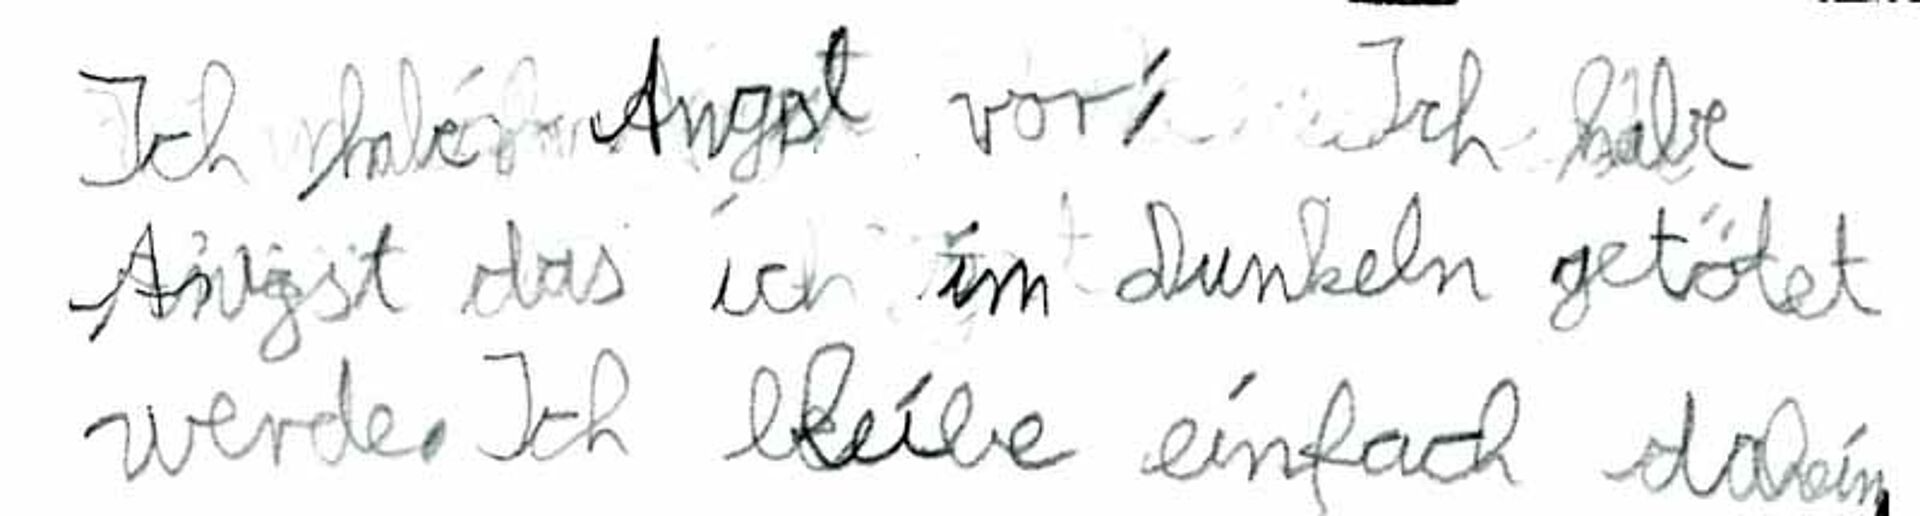 Ich habe Angst vor: Ich habe
Angst das ich im Dunkeln getötet
werde. Ich bleibe einfach dahein